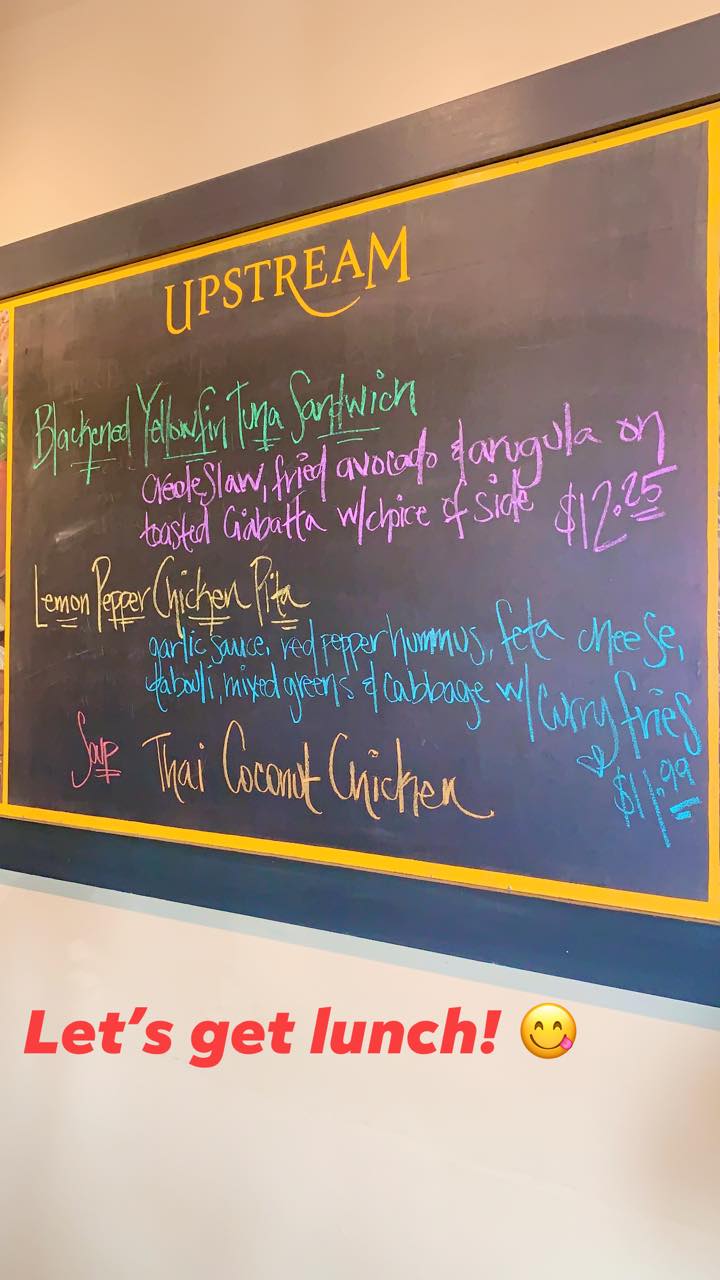 UPSTREAM
Blackened Yellowfin Tuna Sandwich
creole slaw, fried avocado & arugula on
toasted Ciabatta w/choice of side $12.25
Lemon Pepper Chicken Pita
garlic sauce, red pepper hummus, feta cheese,
tabouli, mixed greens & cabbage w/ curry fries
$11.99
Soup Thai Coconut Chicken
Let's get lunch! 😋